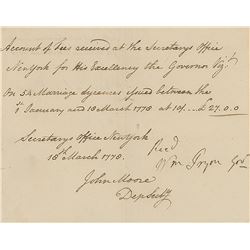 Account of Fees received at the Secretarys Office
New York for His Excellency the Governor Vizt
On 54 Marriage Lycences issued between the
1st January and 18 March 1778 at 10/ ... £27.0.0
Secretarys Office New York
18th March 1778.
Recd
Wm Tryon Govr
John Moore
Dep Secty